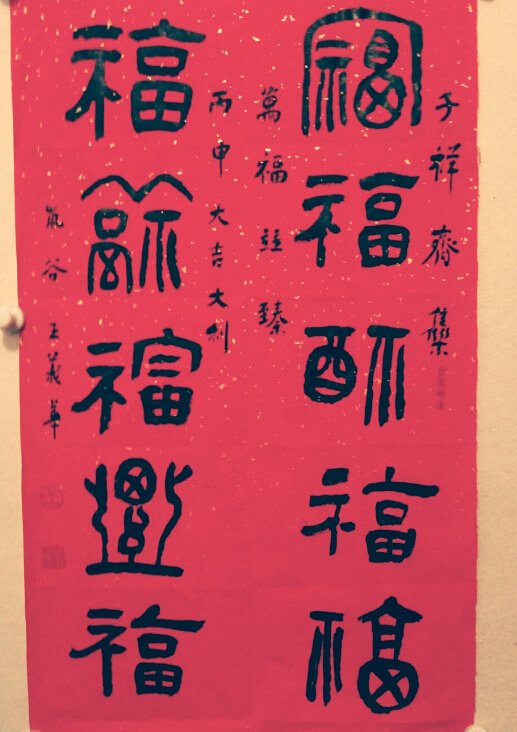 千祥齊集
福福福福福
萬福並臻
丙申大吉大利
福福福福福
嵐谷王義華